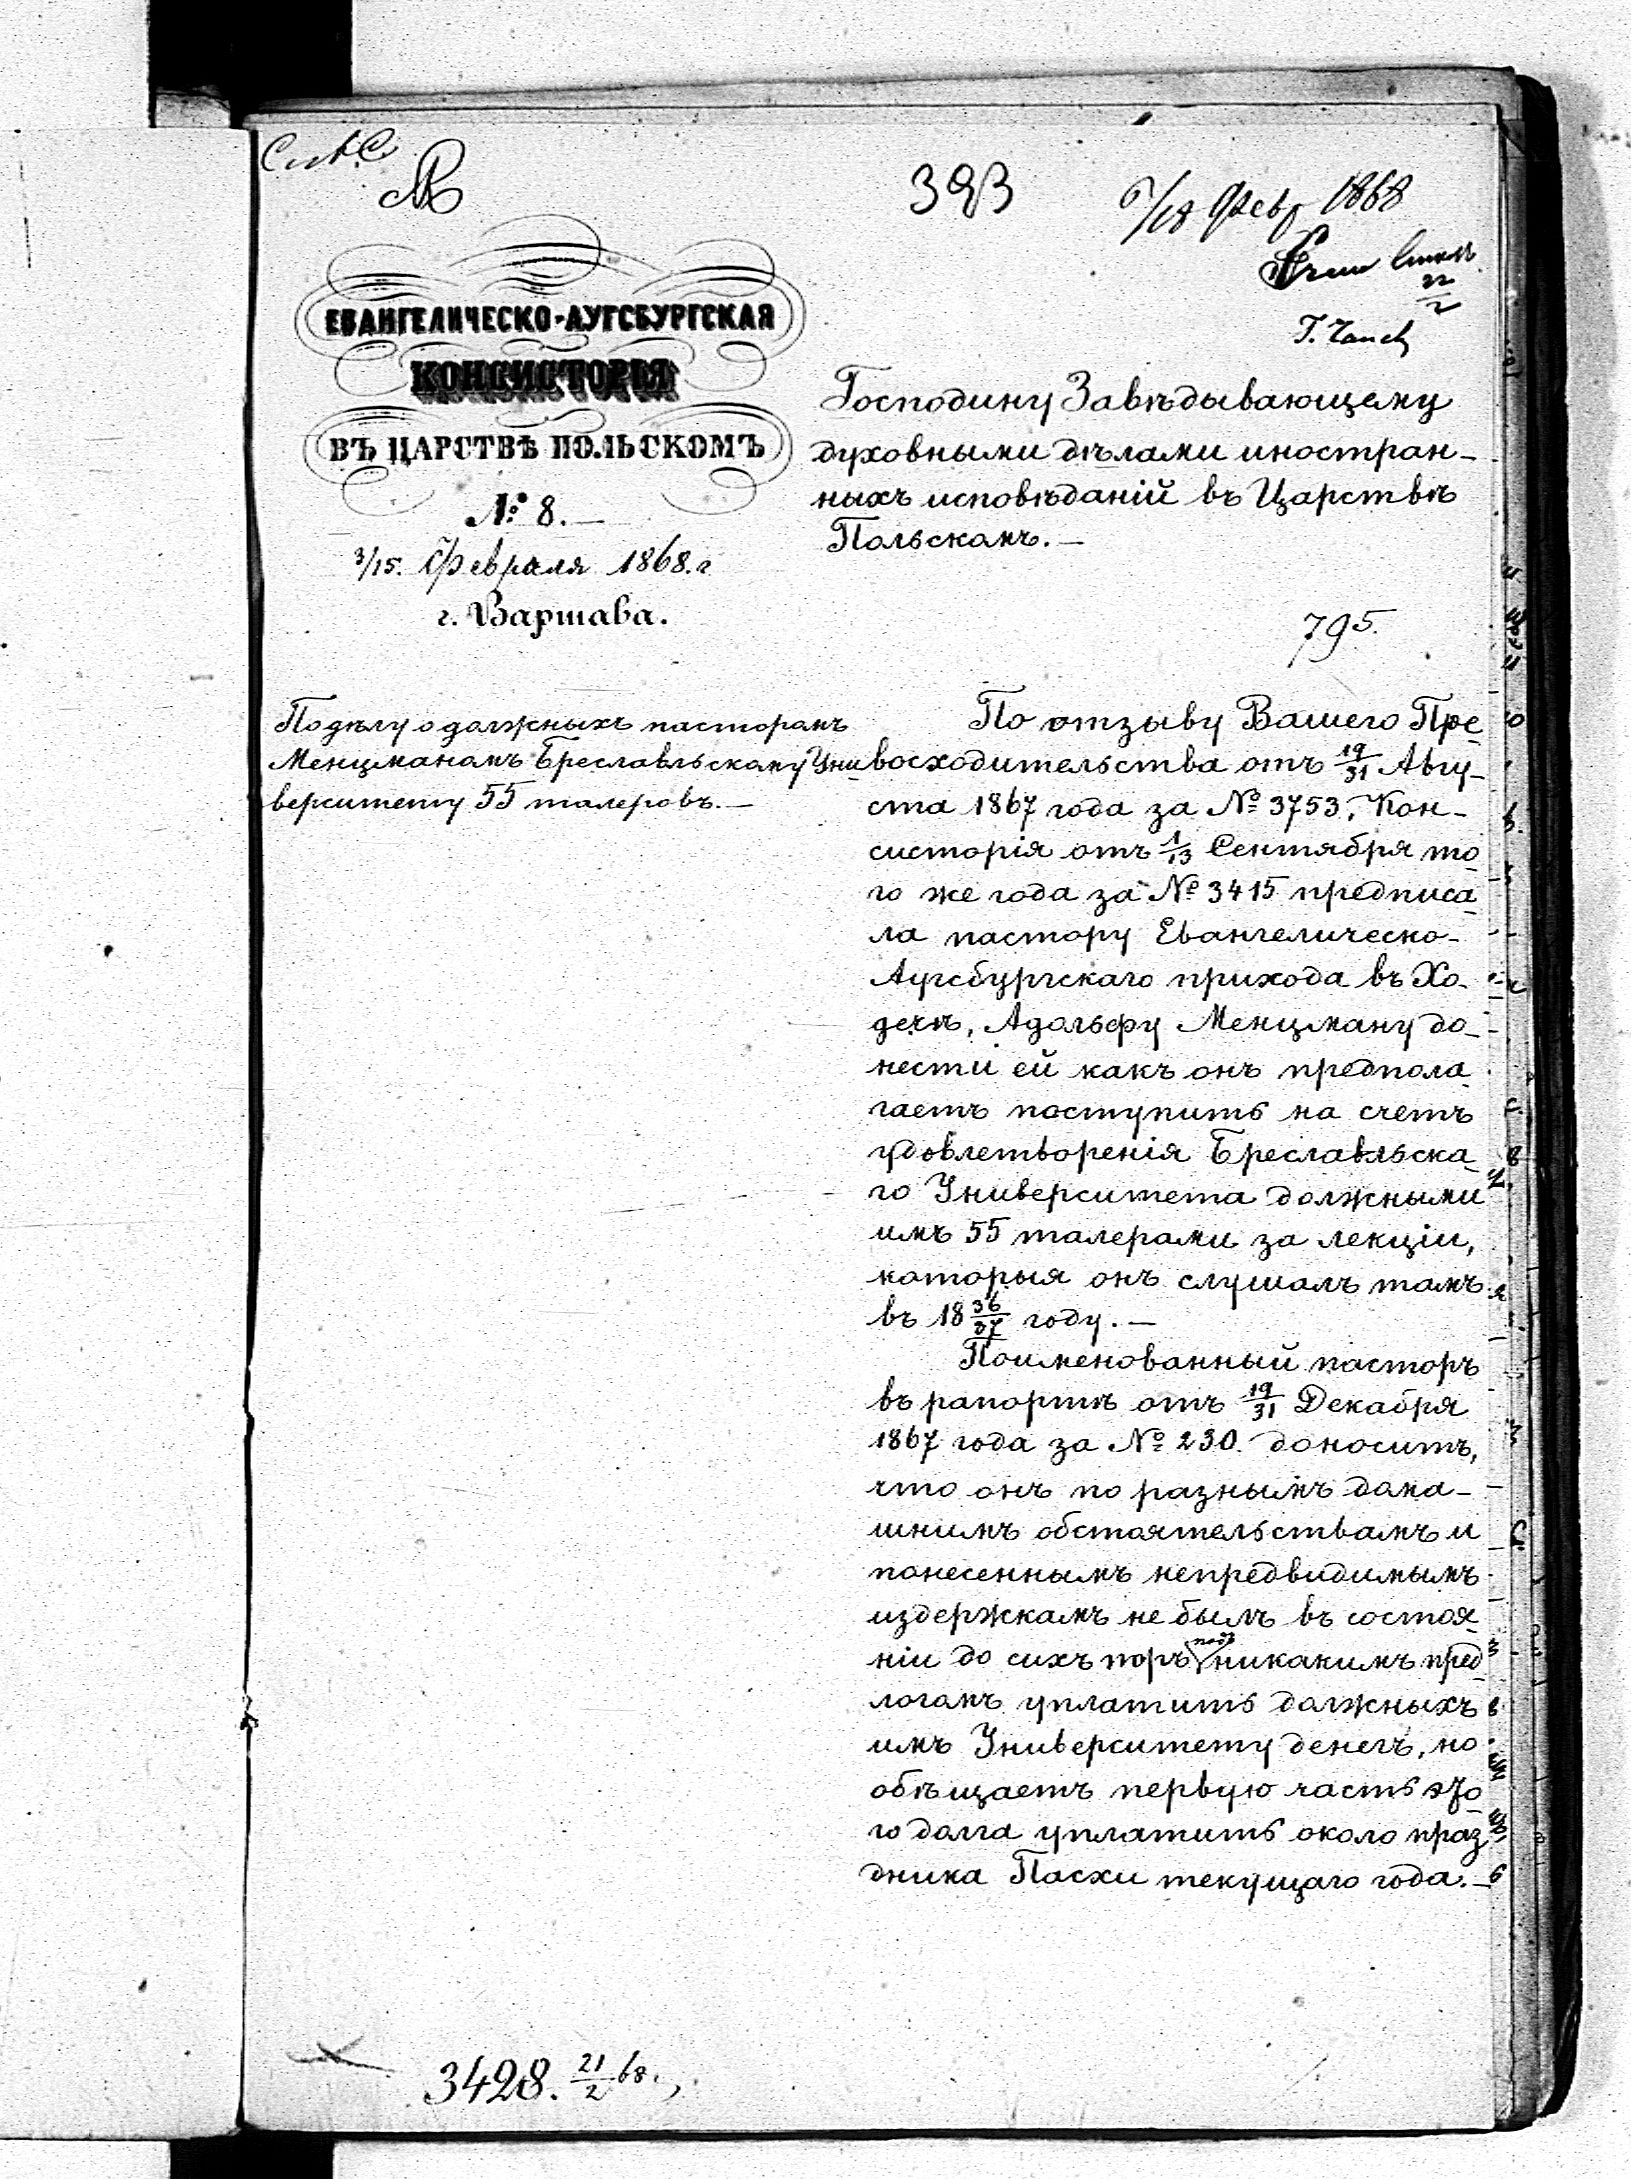 393
6/18 Февр 1868
22/2
ЕВАНГЕЛИЧЕСКО-АУГСБУРГСКАЯ
КОНСИСТОРІЯ
ВЪ ЦАРСТВѢ ПОЛЬСКОМЪ
№ 8.—
3/15. Февраля 1868.г
г. Варшава.
Господину Завѣдывающему
духовными дѣлами иностран-
ныхъ исповѣданій въ Царствѣ
Польскомъ.—
795.
По дѣлу о должныхъ пасторомъ
Менцманомъ Бреславльскому Уни-
верситету 55 талеровъ.—
По отзыву Вашего Пре-
восходительства отъ 19/31 Авгу-
ста 1867 года за № 3753, Кон-
систорія отъ 1/13 Сентября то-
го же года за № 3415 предписа-
ла пастору Евангелическо-
Аугсбургскаго прихода въ Хо-
дечѣ, Адольфу Менцману до-
нести ей какъ онъ предпола-
гаетъ поступить на счетъ
удовлетворенія Бреславльска-
го Университета должными
имъ 55 талерами за лекціи,
которыя онъ слушалъ тамъ
въ 18 36/37 году.—
Поименованный пасторъ
въ рапортѣ отъ 19/31 Декабря
1867 года за № 230. доноситъ,
что онъ по разнымъ дома-
шнимъ обстоятельствамъ и
понесеннымъ непредвидимымъ
издержкамъ не былъ въ состоя-
ніи до сихъ поръ подъ никакимъ пред-
логомъ уплатить должныхъ
имъ Университету денегъ, но
обѣщаетъ первую часть это-
го долга уплатить около праз-
дника Пасхи текущаго года.—
3428. 21/2 68.